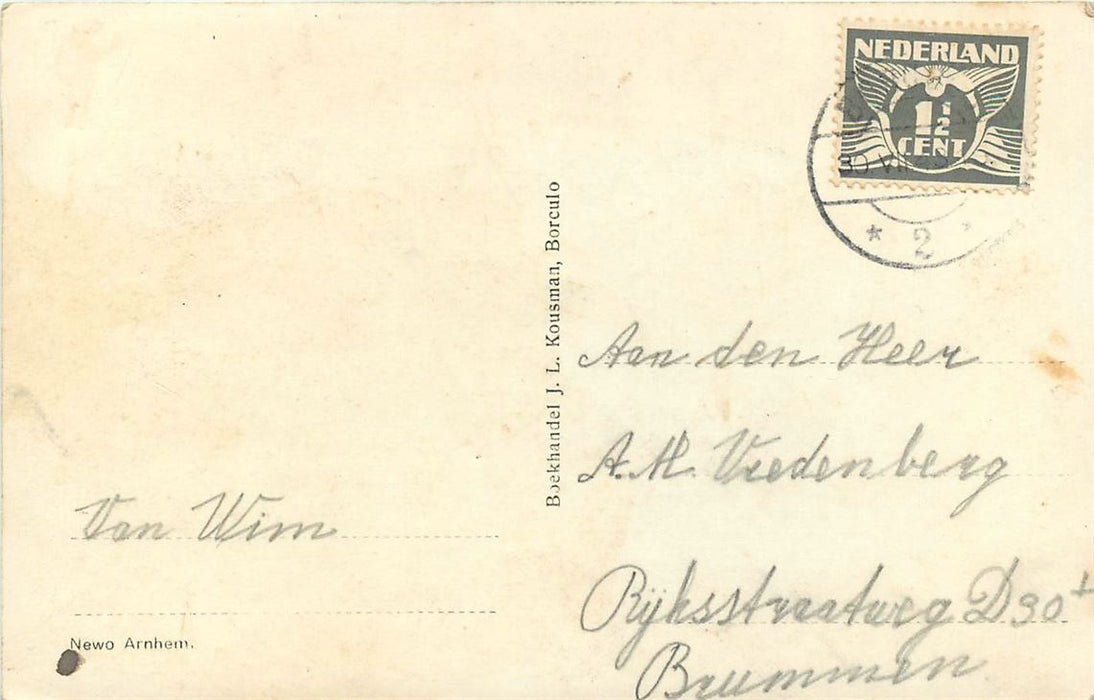 NEDERLAND
1½
CENT
* 2 *
Boekhandel J. L. Kousman, Borculo
Aan den Heer
A. M. Vredenberg
Rijksstraatweg D90
Brummen
Van Wim
Newo Arnhem.